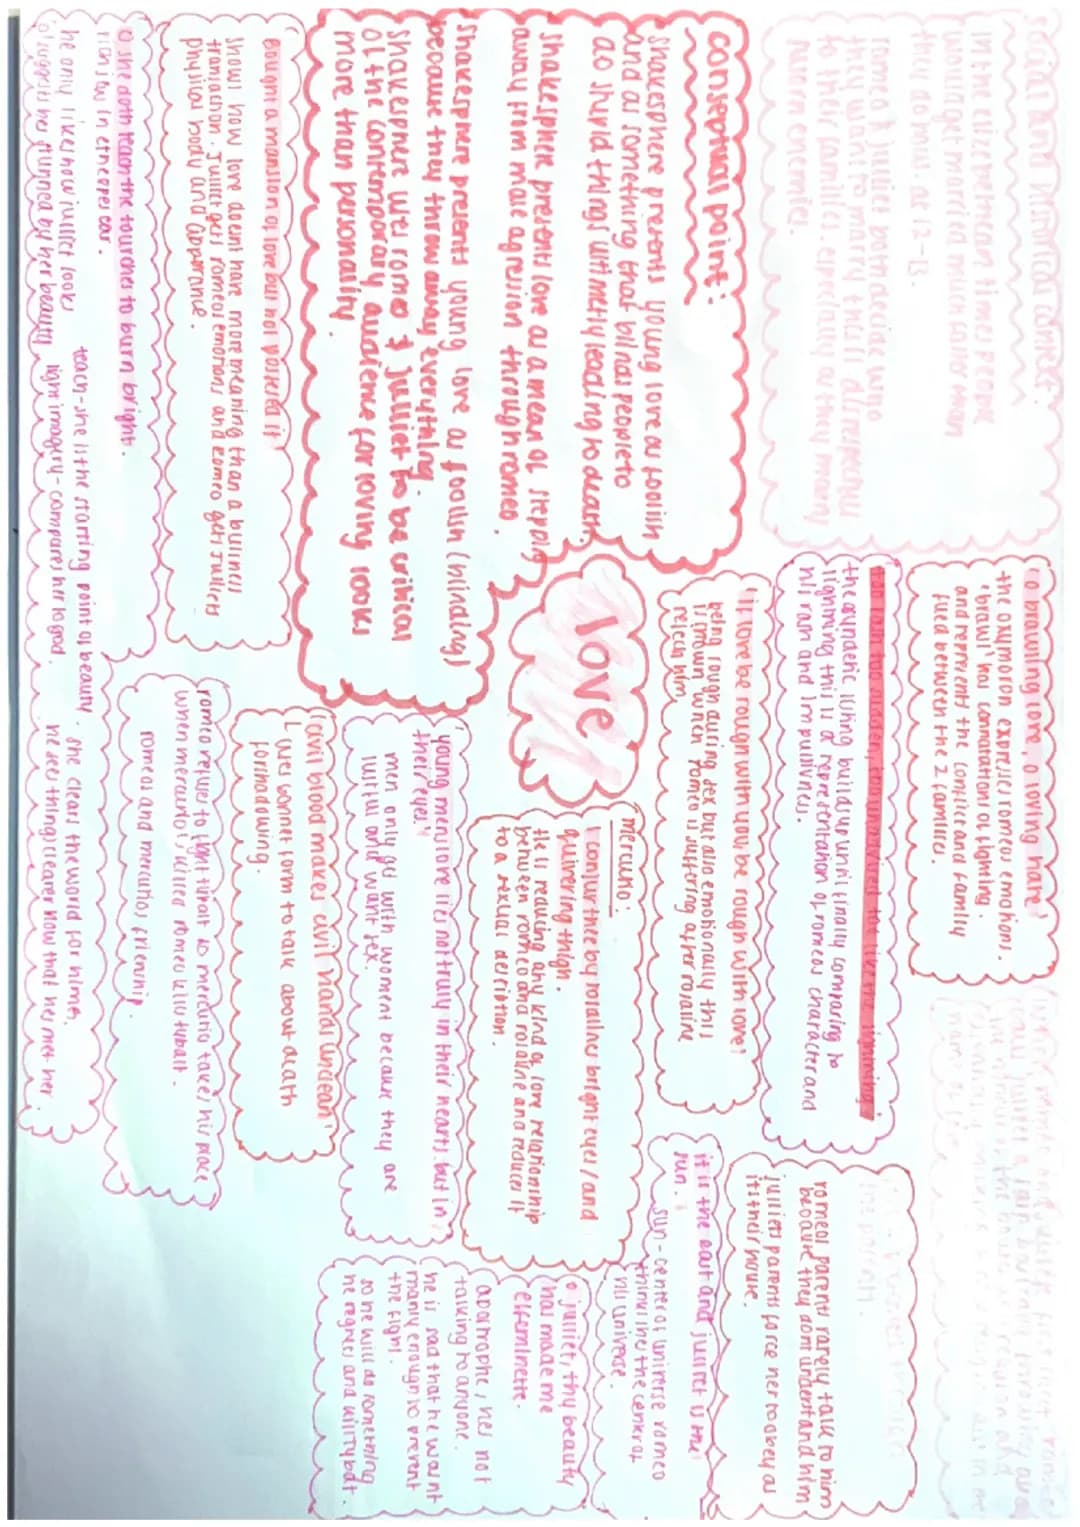 social and historical context:
In the elizebethean times people
would get married much earlier than
they do now. at 12-13.
romeo & julliet both decide who
they want to marry this is disrespectful
to their families, especially as they marry
havern enemies.
conseptual point:
shakesphere presents young love as foolish
and as something that blinds people to
do stupid things ultimetly leading to death.
shakesphere presents love as a mean of stepping
away from male agression through romeo.
shakesphere presents young love as foolish (blindingly)
because they throw away everything.
shakesphere wes romeo & julliet to be critical
of the contemporary audience for loving looks
more than personality.
bought a mansion of love but not possesed it'
shows how love doesnt have more meaning than a buisness
transaction. Juliet gets romeos emotions and Romeo gets Juliets
physical body and apparance.
o she doth teach the tourches to burn bright.
rich jew in etheopes ear.
he only likes how juliet looks
teach-she is the starting point of beauty
light imagery-compares her to god.
she clears the world for himeh.
he sees things clearer now that hes met her.
love
'o brawling love, o loving hate'
the oxymoron expresses romeos emotions.
'brawl' has connotations of fighting.
and represents the conflict and family
fued between the 2 families.
too rash too sudden, too unadvised too like the lightning'
the asyndetic listing builds up until finally comparing to
lightning this is a representation of romeos character and
his rash and impulsivness.
'if love be rough with you be rough with love'
being rough during sex but also emotionally this
is shown when romeo is suffering after rosaline
rejects him
mercutio:
I conjur thee by rosalines bright eyes/and
quivering thigh.
He is reducing any kind of love relationship
between romeo and rosaline and reduces it
to a sexual desription.
'young mens love lies not truly in their hearts but in
their eyes.'
men only get with woment because they are
lustful and want sex.
'civil blood makes civil hands unclean'
wes sonnet form to talk about death
forshadowing.
romeo refuses to fight tybalt so mercutio takes his place
when mercutio dies romeo kills tybalt.
romeos and mercutios frienship.
romeos parents rarely talk to him
because they dont understand him
julliets parents force her to obey as
its their house.
it is the east and juliet is the
sun.
sun-center of universe romeo
thinks she's the center of
his universe.
o julliet, thy beauty
has made me
effeminette.
apostrophe, hes not
talking to anyone.
he is sad that he wasnt
manly enough to prevent
the fight.
so he will do something
he regrets and kill tybalt.